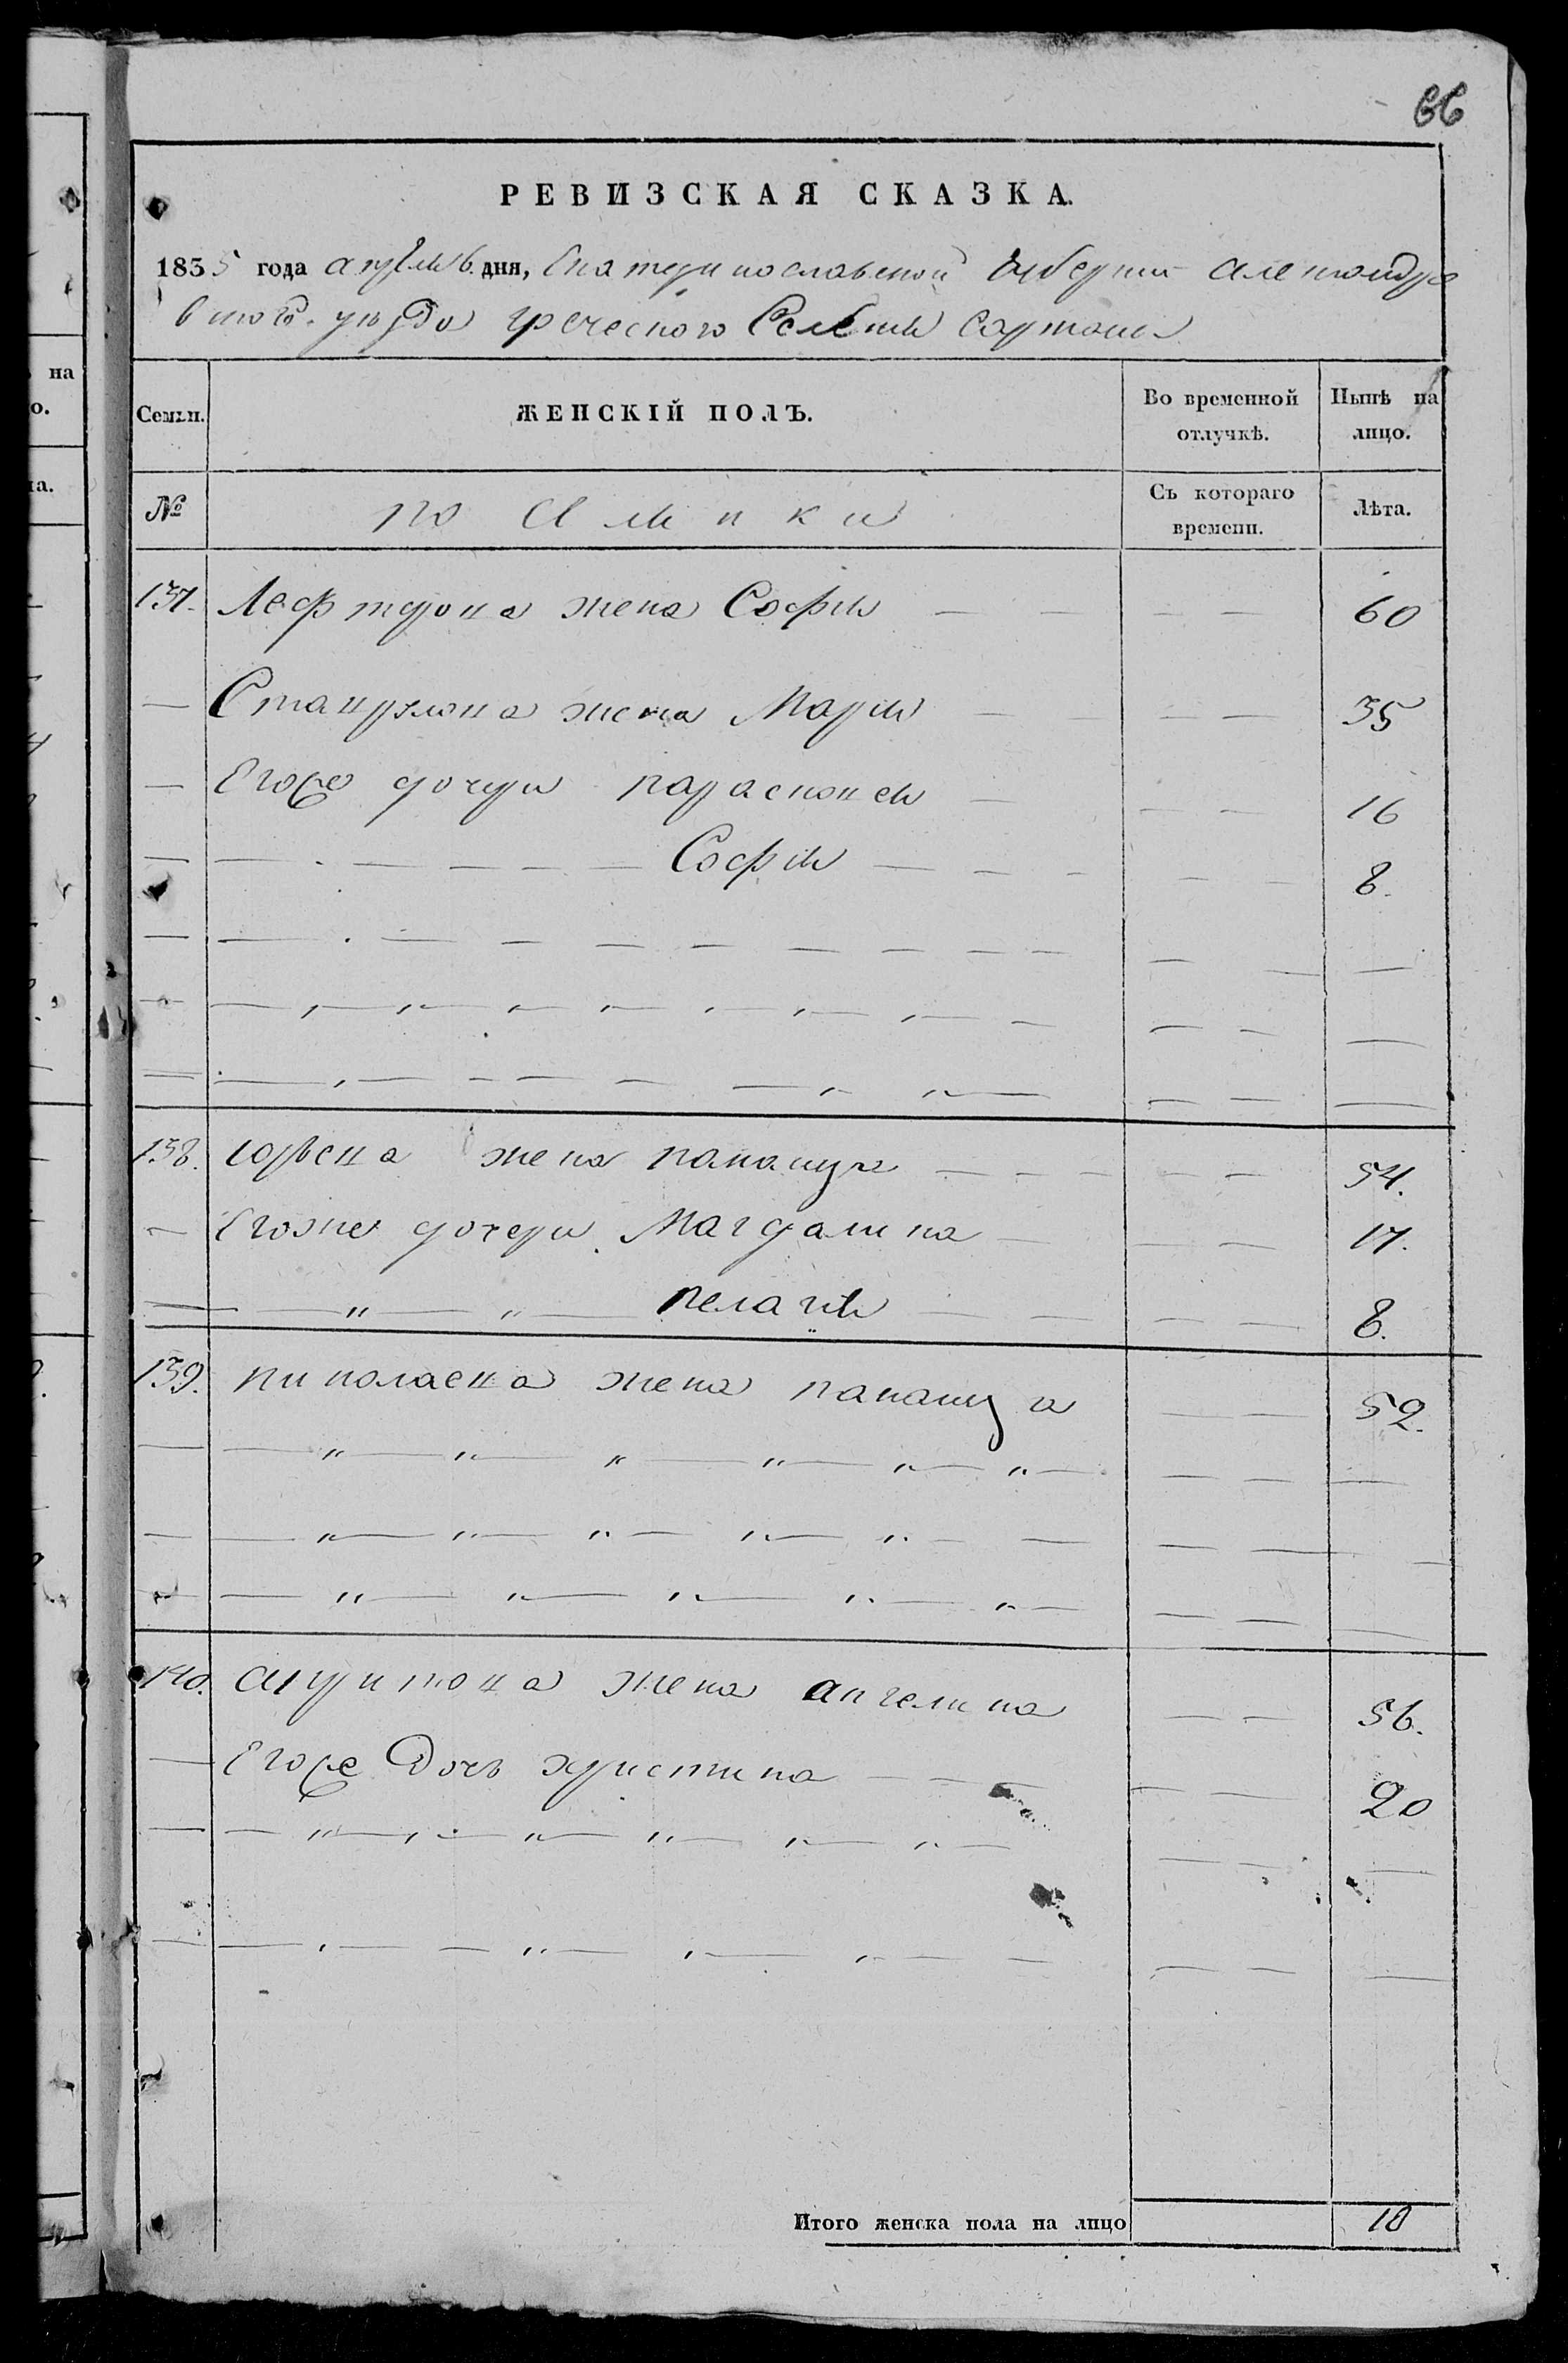 66
РЕВИЗСКАЯ СКАЗКА.
1835 года апреля 6. дня, Екатеринославской Губернии Александро
вского уезда греческого Селения Сартаны
Семьи. ЖЕНСКІЙ ПОЛЪ. Во временной отлучкѣ. Нынѣ на лицо.
№ поселянки Съ котораго времени. Лѣта.
137. Лефтерова жена София — — — — 60
— жена Мария — — — — 35
— Егоже дочери парасковея — — — 16
— — — — — — София — — — — — 8.
138. юрьева жена — — — — — 54.
— Егоже дочери. Магдалина — — — 17.
— „ — „ — пелагия — — — — 8.
139. николаева жена — — 52.
140. жена ангелина — — 56.
— Егоже Дочь христина — — — — 20
Итого женска пола на лицо 10